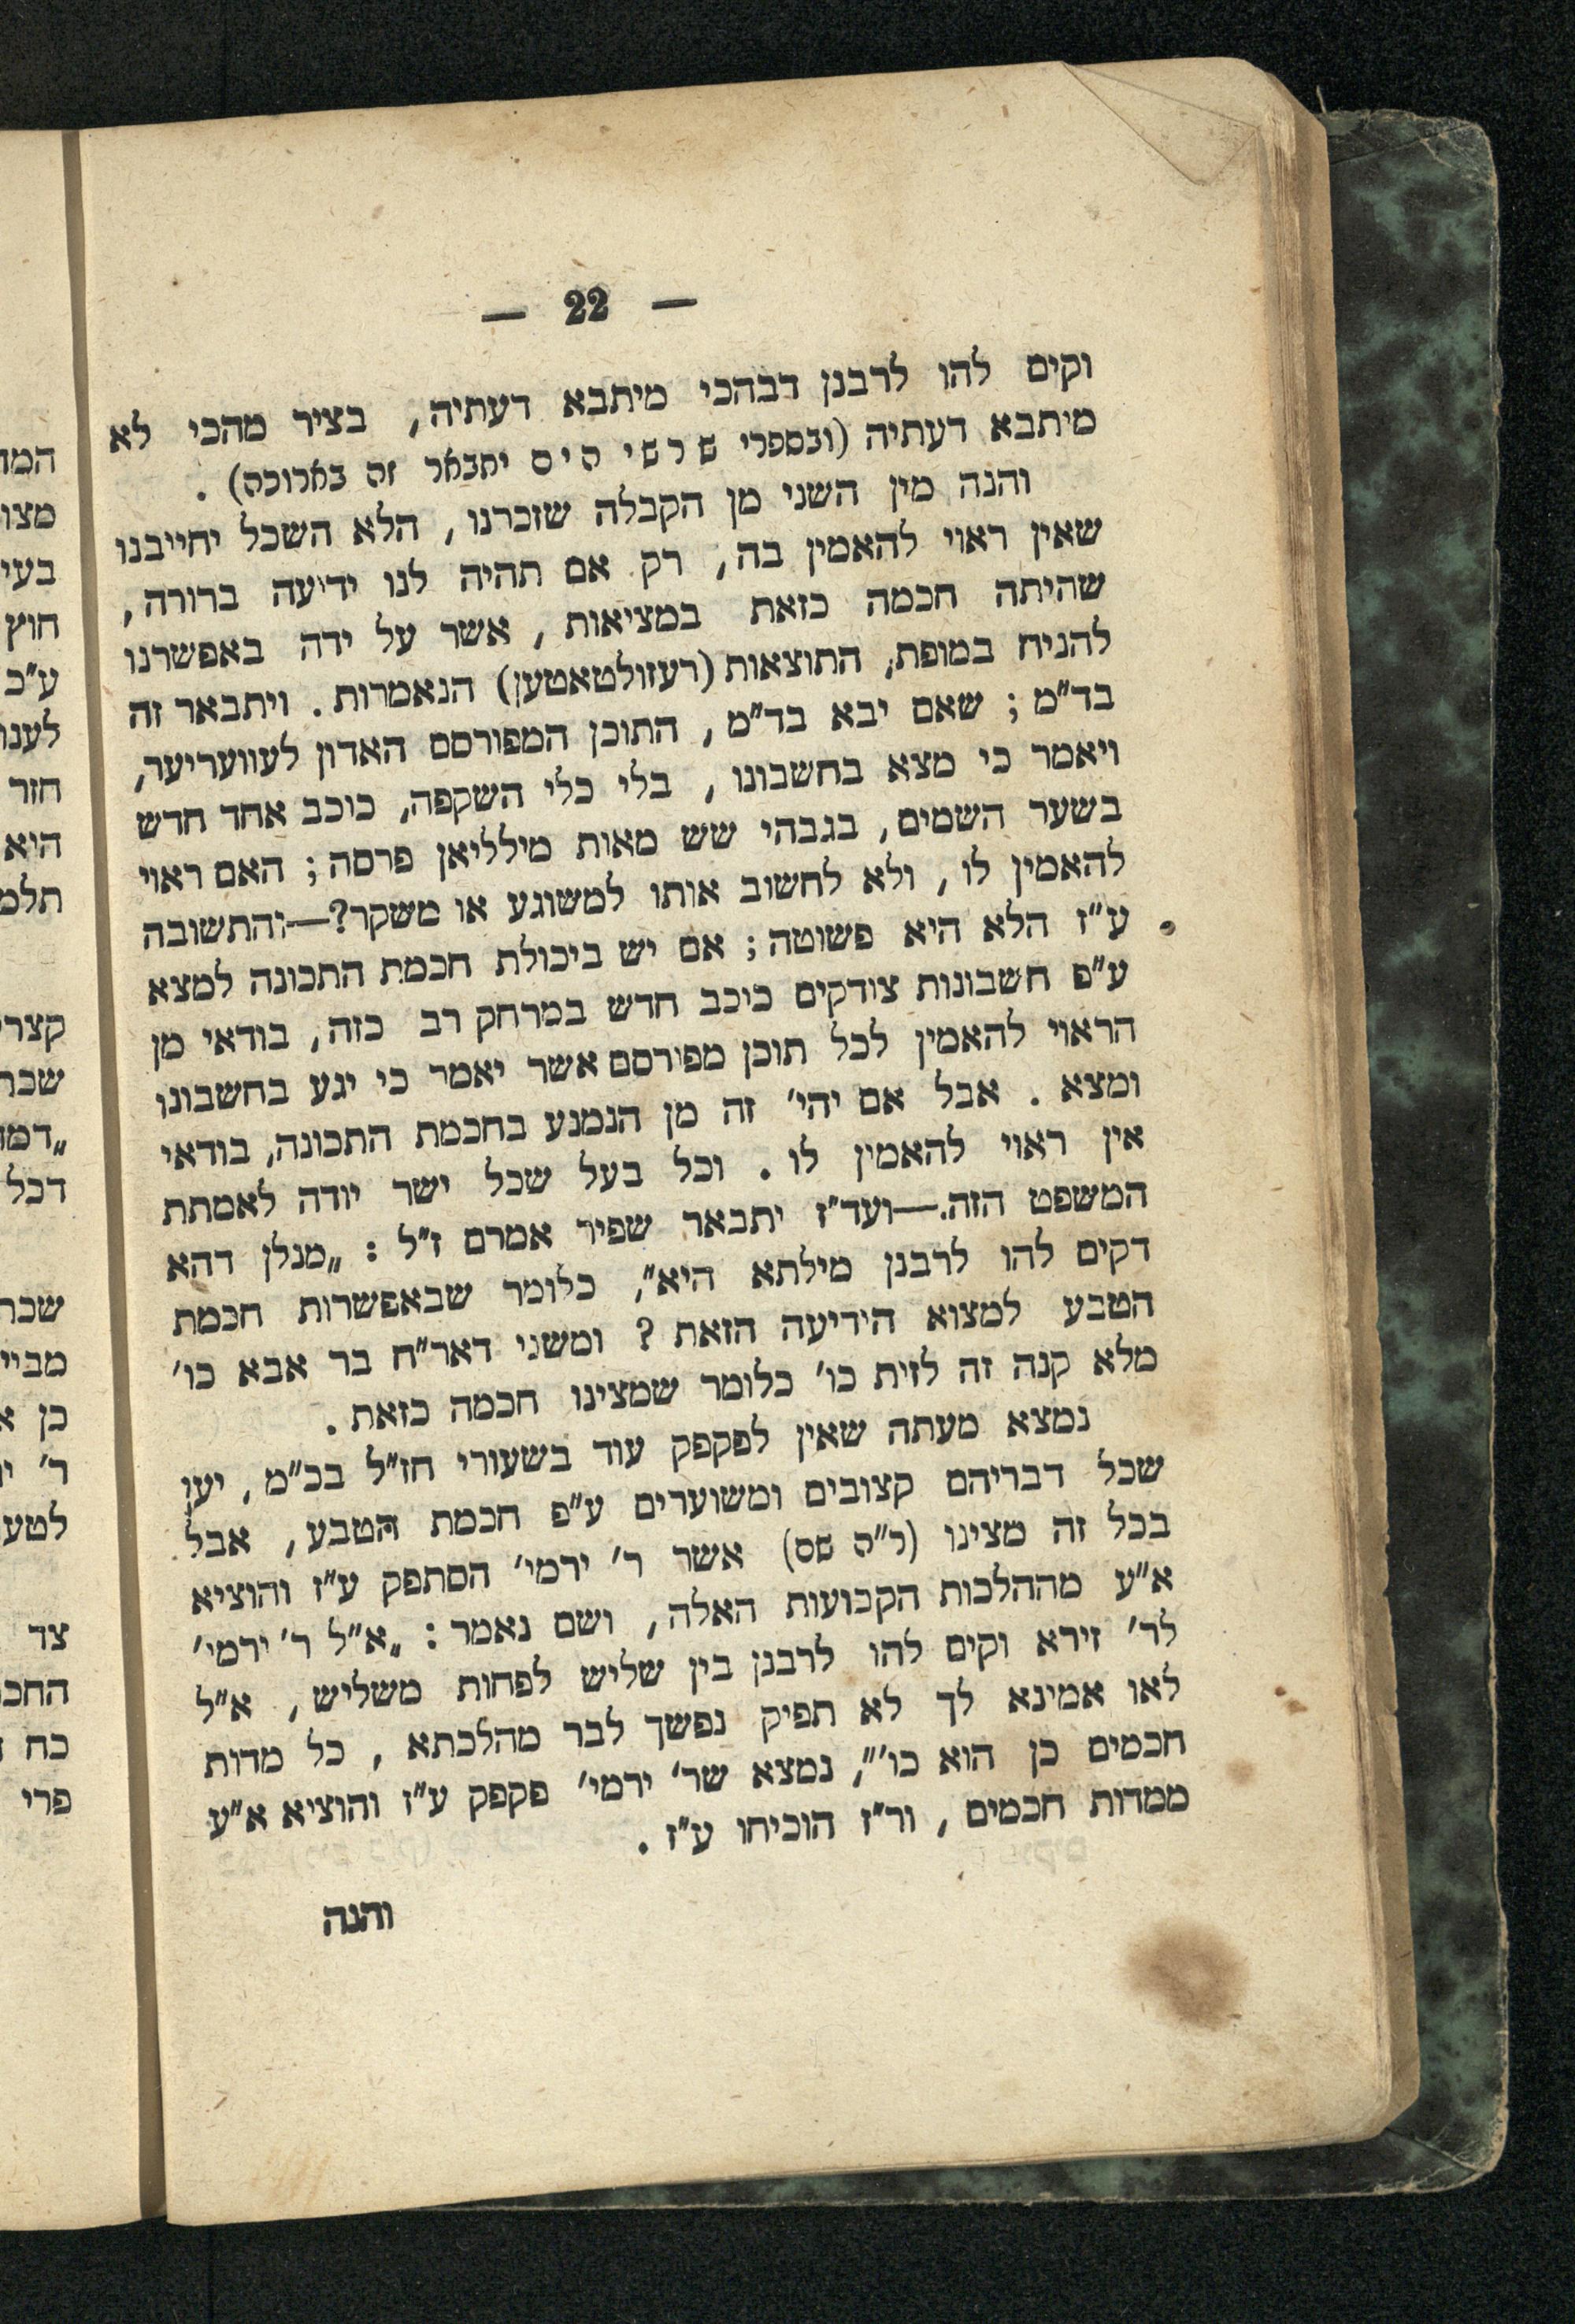 — 22 —
וקים להו לרבנן דבהכי מיתבא דעתיה, בציר מהכי לא
מיתבא דעתיה (ובספרי שרשי הים יתבאר זה בארוכה).
והנה מין השני מן הקבלה שזכרנו, הלא השכל יחייבנו
שאין ראוי להאמין בה, רק אם תהיה לנו ידיעה ברורה,
שהיתה חכמה כזאת במציאות, אשר על ידה באפשרנו
להניח במופת, התוצאות (רעזולטאטען) הנאמרות. ויתבאר זה
בד"מ; שאם יבא בד"מ, התוכן המפורסם האדון לעוועריער,
ויאמר כי מצא בחשבונו, בלי כלי השקפה, כוכב אחד חדש
בשער השמים, בגבהי שש מאות מילליאן פרסה; האם ראוי
להאמין לו, ולא לחשוב אותו למשוגע או משקר?—והתשובה
ע"ז הלא היא פשוטה; אם יש ביכולת חכמת התכונה למצא
ע"פ חשבונות צודקים כוכב חדש במרחק רב כזה, בודאי מן
הראוי להאמין לכל תוכן מפורסם אשר יאמר כי יגע בחשבונו
ומצא. אבל אם יהי' זה מן הנמנע בחכמת התכונה, בודאי
אין ראוי להאמין לו. וכל בעל שכל ישר יודה לאמתת
המשפט הזה.—ועד"ז יתבאר שפיר אמרם ז"ל: „מנלן דהא
דקים להו לרבנן מילתא היא", כלומר שבאפשרות חכמת
הטבע למצוא הידיעה הזאת? ומשני דאר"ח בר אבא כו'
מלא קנה זה לזית כו' כלומר שמצינו חכמה כזאת.
נמצא מעתה שאין לפקפק עוד בשעורי חז"ל בכ"מ, יען
שכל דבריהם קצובים ומשוערים ע"פ חכמת הטבע, אבל
בכל זה מצינו (ר"ה שם) אשר ר' ירמי' הסתפק ע"ז והוציא
א"ע מההלכות הקבועות האלה, ושם נאמר: „א"ל ר' ירמי'
לר' זירא וקים להו לרבנן בין שליש לפחות משליש, א"ל
לאו אמינא לך לא תפיק נפשך לבר מהלכתא, כל מדות
חכמים כן הוא כו'", נמצא שר' ירמי' פקפק ע"ז והוציא א"ע
ממדות חכמים, ור"ז הוכיחו ע"ז.
והנה